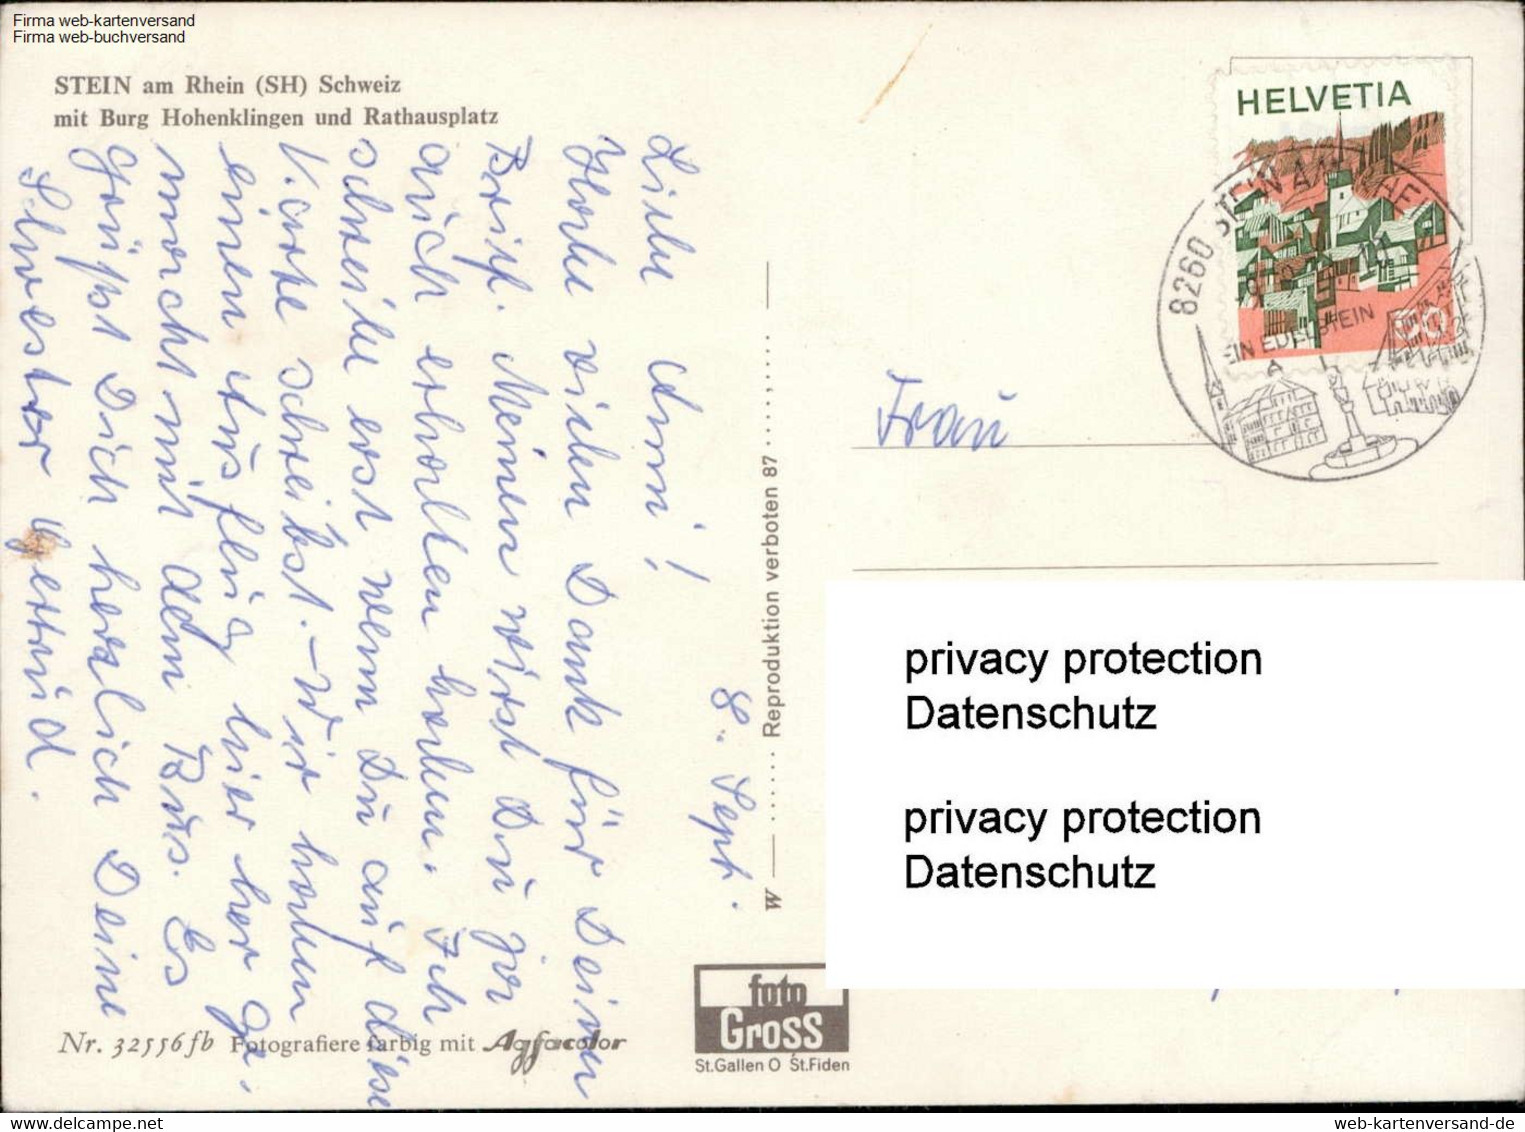 Firma web-kartenversand
Firma web-buchversand
STEIN am Rhein (SH) Schweiz
mit Burg Hohenklingen und Rathausplatz
HELVETIA
30
8260 STEIN AM RHEIN
EIN EDELSTEIN
8. Sept.
Liebe Anni!
Habe vielen Dank für Deinen
Brief. Meinen wirst Du ja
auch erhalten haben. Ich
schreibe erst wenn Du auf diese
Karte schreibst. – Wir haben
einen Ausflug hier her ge-
macht mit dem Bus. Es
grüßt Dich herzlich Deine
Schwester Gertrud.
Frau
W Reproduktion verboten 87
privacy protection
Datenschutz
privacy protection
Datenschutz
Nr. 32556fb Fotografiere farbig mit Agfacolor
foto
Gross
St.Gallen O St.Fiden
www.delcampe.net
web-kartenversand-de